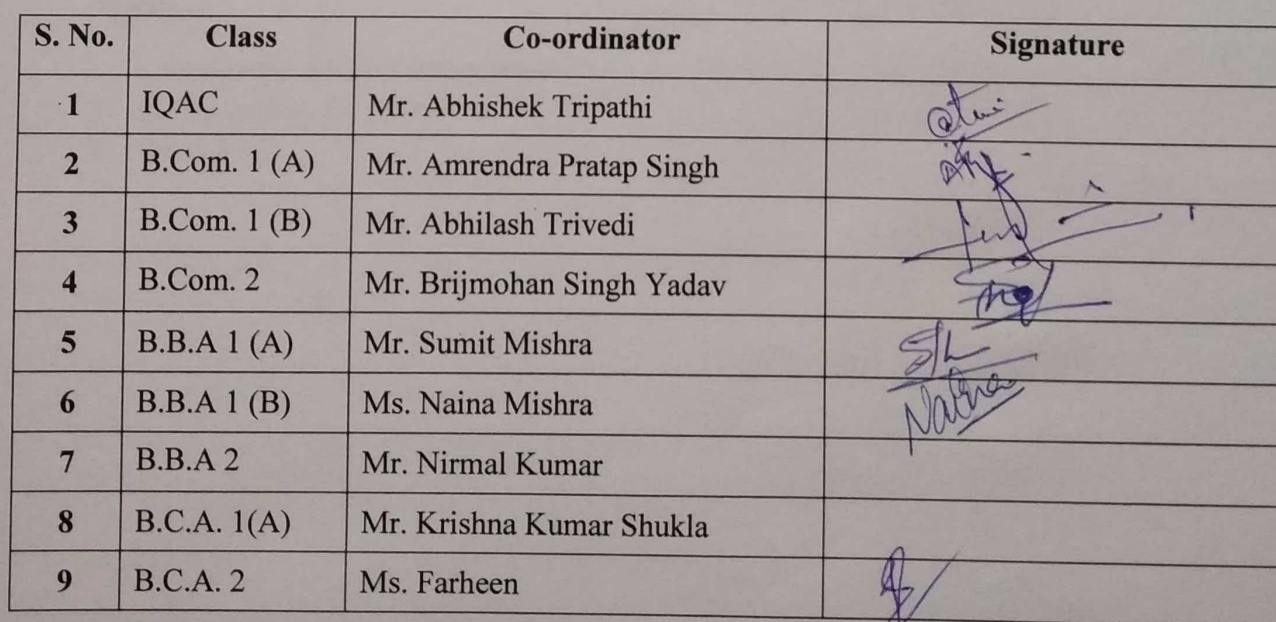 S. No. Class Co-ordinator Signature
1 IQAC Mr. Abhishek Tripathi
2 B.Com. 1 (A) Mr. Amrendra Pratap Singh
3 B.Com. 1 (B) Mr. Abhilash Trivedi
4 B.Com. 2 Mr. Brijmohan Singh Yadav
5 B.B.A 1 (A) Mr. Sumit Mishra
6 B.B.A 1 (B) Ms. Naina Mishra Naina
7 B.B.A 2 Mr. Nirmal Kumar
8 B.C.A. 1(A) Mr. Krishna Kumar Shukla
9 B.C.A. 2 Ms. Farheen